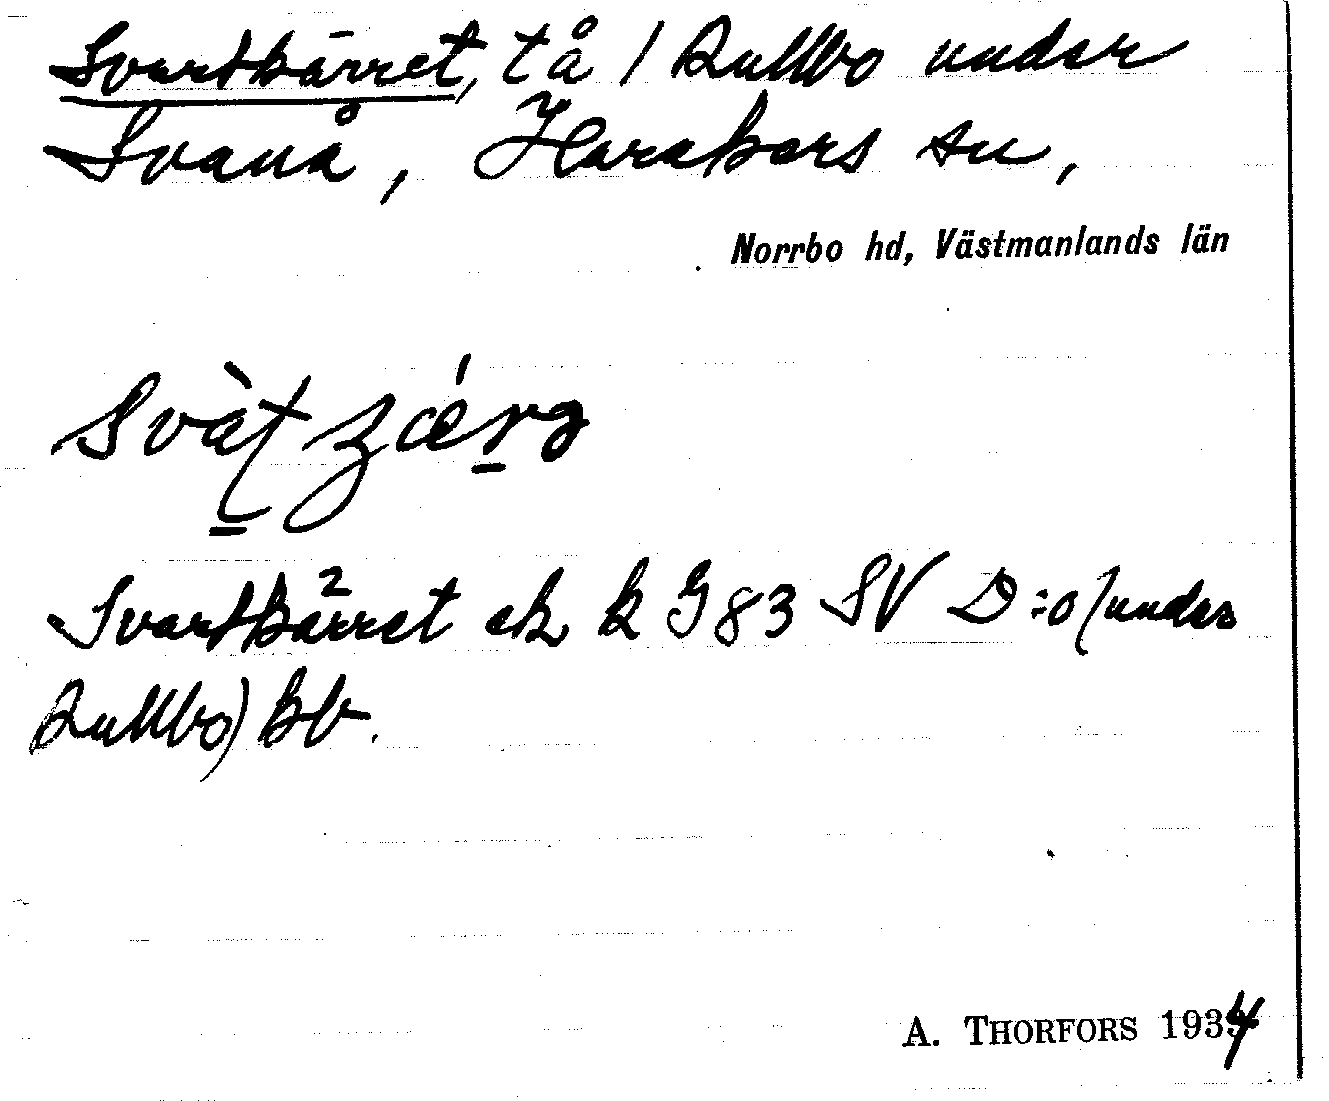 Svartkärret, tå / Rullbo under
Svanå, Harakers sn,
Norrbo hd, Västmanlands län
Svartkärret ek k G 83 SV D:o (under
Rullbo) bb.
A. THORFORS 1934